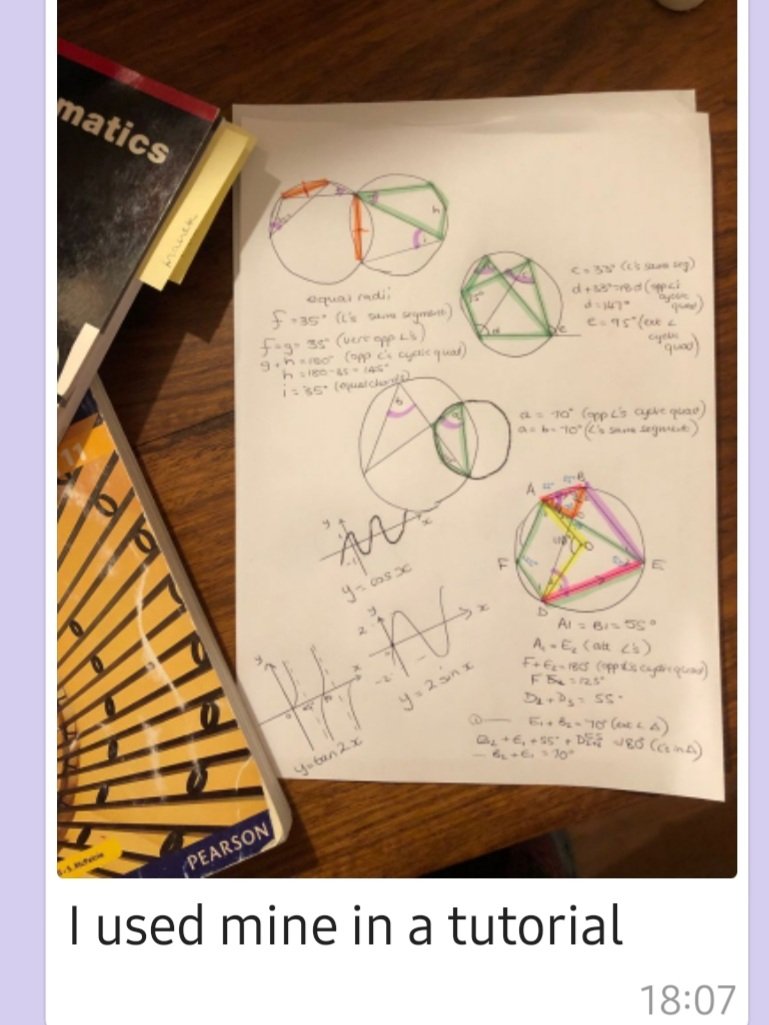 matics
equal radii
f = 35° (L's same segment)
f=g= 35° (vert opp L's)
g+h=180° (opp L's cyclic quad)
h = 180-35 = 145°
i = 35° (equal chords)
c = 33° (L's same seg)
d+33°=180 (opp L's cyclic quad)
d = 147°
e = 95° (ext L cyclic quad)
a = 70° (opp L's cyclic quad)
a = b = 70° (L's same segment)
h
i
b
a
35°
d
e
y
x
y = cos x
y
x
2
-2
y = 2 sin x
y
x
y=tan 2x
A
B
F
O
E
D
A1 = B1 = 55°
A1 = E2 (alt L's)
F+E2=180 (opp L's cyclic quad)
= 125°
D2 + D3 = 55°
① E1 + B2 = 70° (ext L Δ)
+ E1 + 55° + 180° (L's in Δ)
B2 + E1 = 70°
PEARSON
I used mine in a tutorial
18:07